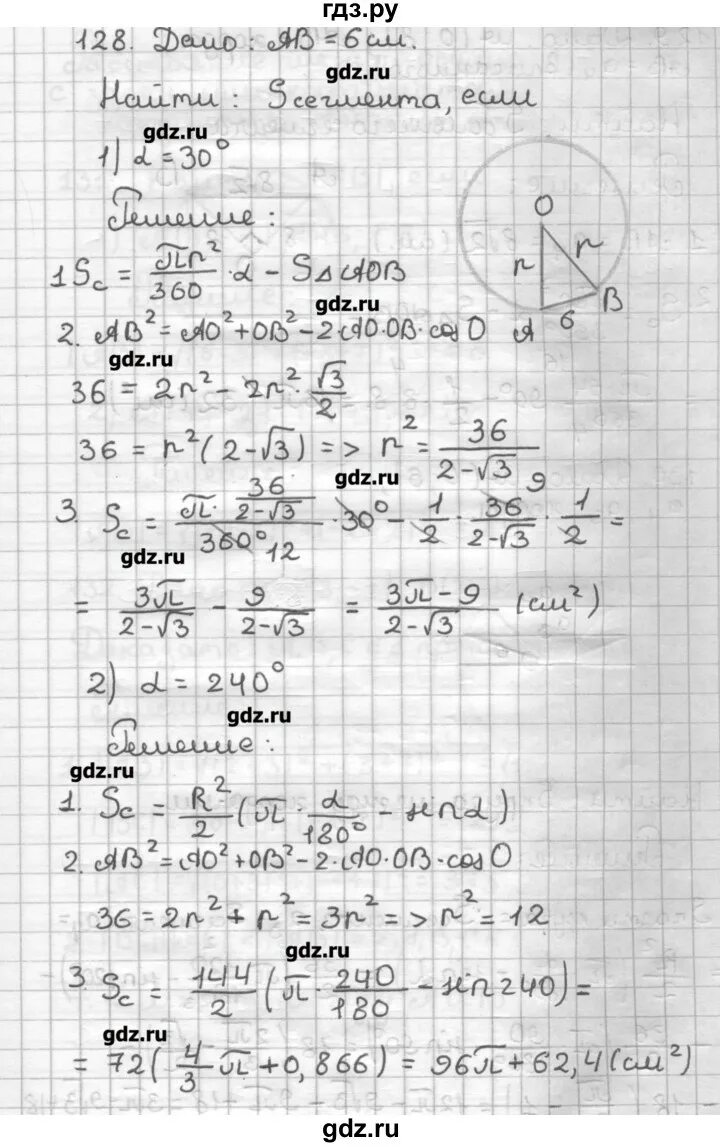 гдз.ру
128. Дано: AB = 6 см.
gdz.ru
Найти: Sсегмента, если
gdz.ru
1) α = 30°
Решение:
O
r
r
B
A
6
1 Sc = πr²/360 · α − S△AOB
gdz.ru
2. AB² = AO² + OB² − 2·AO·OB·cos O
gdz.ru
36 = 2r² − 2r² · √3/2
36 = r²(2−√3) => r² = 36/(2−√3)
gdz.ru
3. Sc = (π · 36/(2−√3))/360° 12 · 30° − 1/2 · 36 9/(2−√3) · 1/2 =
gdz.ru
= 3π/(2−√3) − 9/(2−√3) = (3π−9)/(2−√3) (см²)
2) α = 240°
gdz.ru
Решение:
gdz.ru
1. Sc = R²/2 (π · α/180° − sin α)
2. AB² = AO² + OB² − 2·AO·OB·cos O
36 = 2r² + r² = 3r² => r² = 12
gdz.ru
3. Sc = 144/2 (π · 240/180 − sin 240) =
gdz.ru
= 72(4/3 π + 0,866) = 96π + 62,4 (см²)
гдз.ру